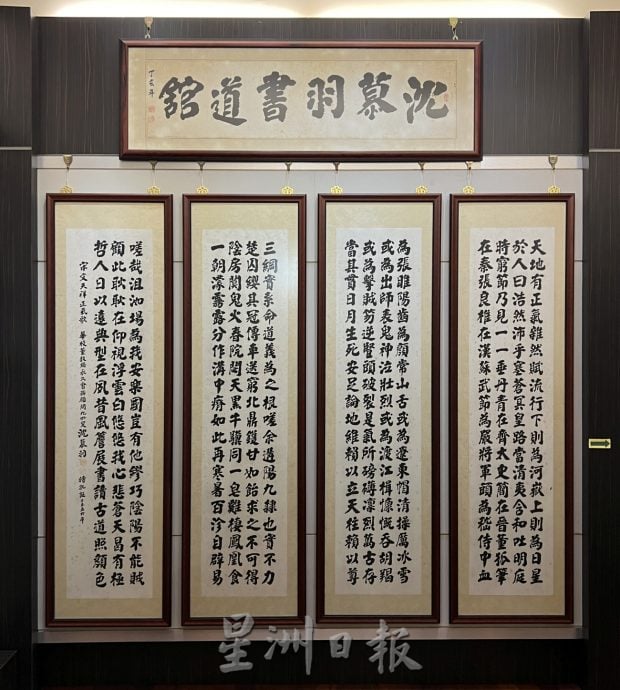 沈慕羽書道館
丁亥年
天地有正氣雜然賦流行下則為河嶽上則為日星
於人曰浩然沛乎塞蒼冥皇路當清夷含和吐明庭
時窮節乃見一一垂丹青在齊太史簡在晉董狐筆
在秦張良椎在漢蘇武節為嚴將軍頭為嵇侍中血
為張睢陽齒為顏常山舌或為遼東帽清操厲冰雪
或為出師表鬼神泣壯烈或為渡江楫慷慨吞胡羯
或為擊賊笏逆豎頭破裂是氣所磅礡凜烈萬古存
當其貫日月生死安足論地維賴以立天柱賴以尊
三綱實系命道義為之根嗟余遘陽九隸也實不力
楚囚纓其冠傳車送窮北鼎鑊甘如飴求之不可得
陰房闃鬼火春院閟天黑牛驥同一皂雞棲鳳凰食
一朝濛霧露分作溝中瘠如此再寒暑百沴自辟易
嗟哉沮洳場為我安樂國豈有他繆巧陰陽不能賊
顧此耿耿在仰視浮雲白悠悠我心悲蒼天曷有極
哲人日以遠典型在夙昔風簷展書讀古道照顏色
宋文天祥正氣歌 沈慕羽
星洲日報